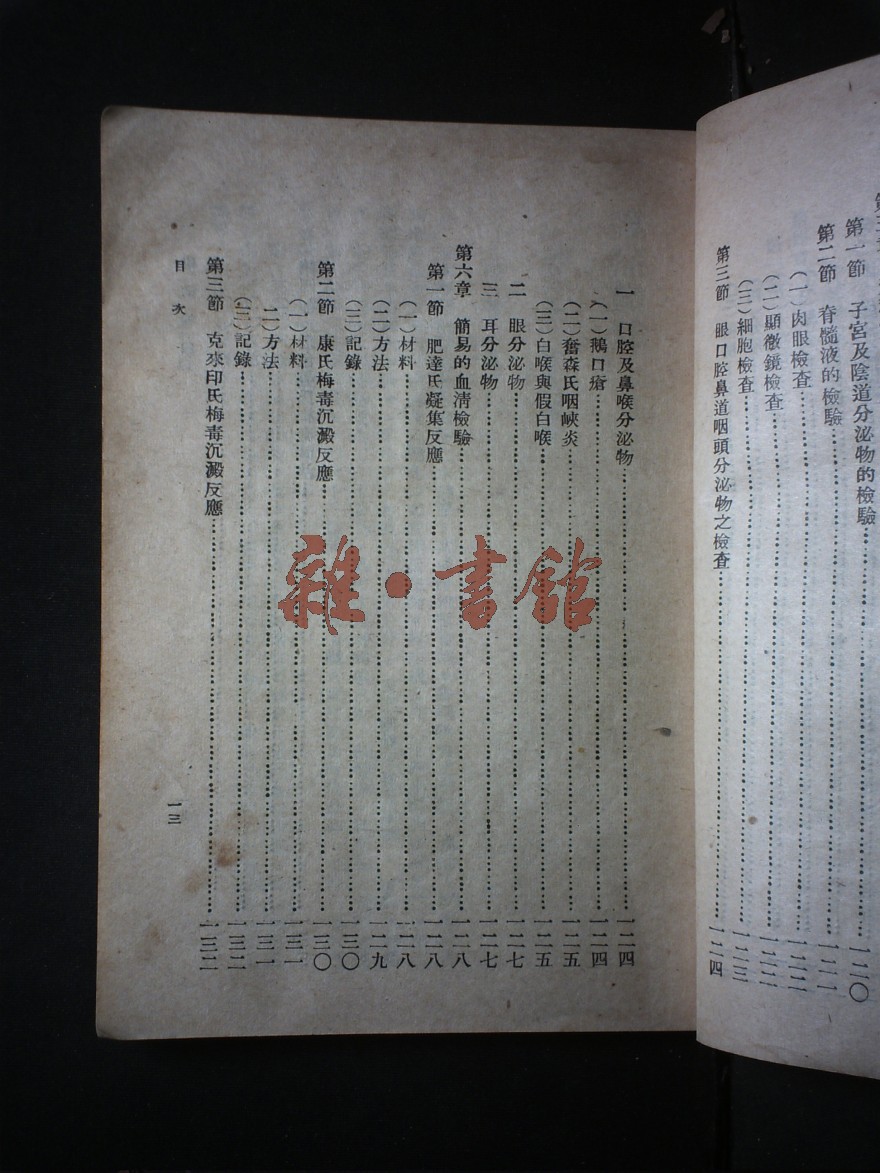 第一節 子宮及陰道分泌物的檢驗……一二〇
第二節 脊髓液的檢驗……一二一
(一)肉眼檢查……一二二
(二)顯微鏡檢查……一二二
(三)細胞檢查……一二三
第三節 眼口腔鼻道咽頭分泌物之檢查……一二四
一 口腔及鼻喉分泌物……一二四
(一)鵝口瘡……一二四
(二)奮森氏咽峽炎……一二五
(三)白喉與假白喉……一二五
二 眼分泌物……一二七
三 耳分泌物……一二七
第六章 簡易的血清檢驗……一二八
第一節 肥達氏凝集反應……一二八
(一)材料……一二八
(二)方法……一二九
(三)記錄……一三〇
第二節 康氏梅毒沉澱反應……一三〇
(一)材料……一三一
二)方法……一三一
(三)記錄……一三二
第三節 克來印氏梅毒沉澱反應……一三二
目次 一三
雜·書館